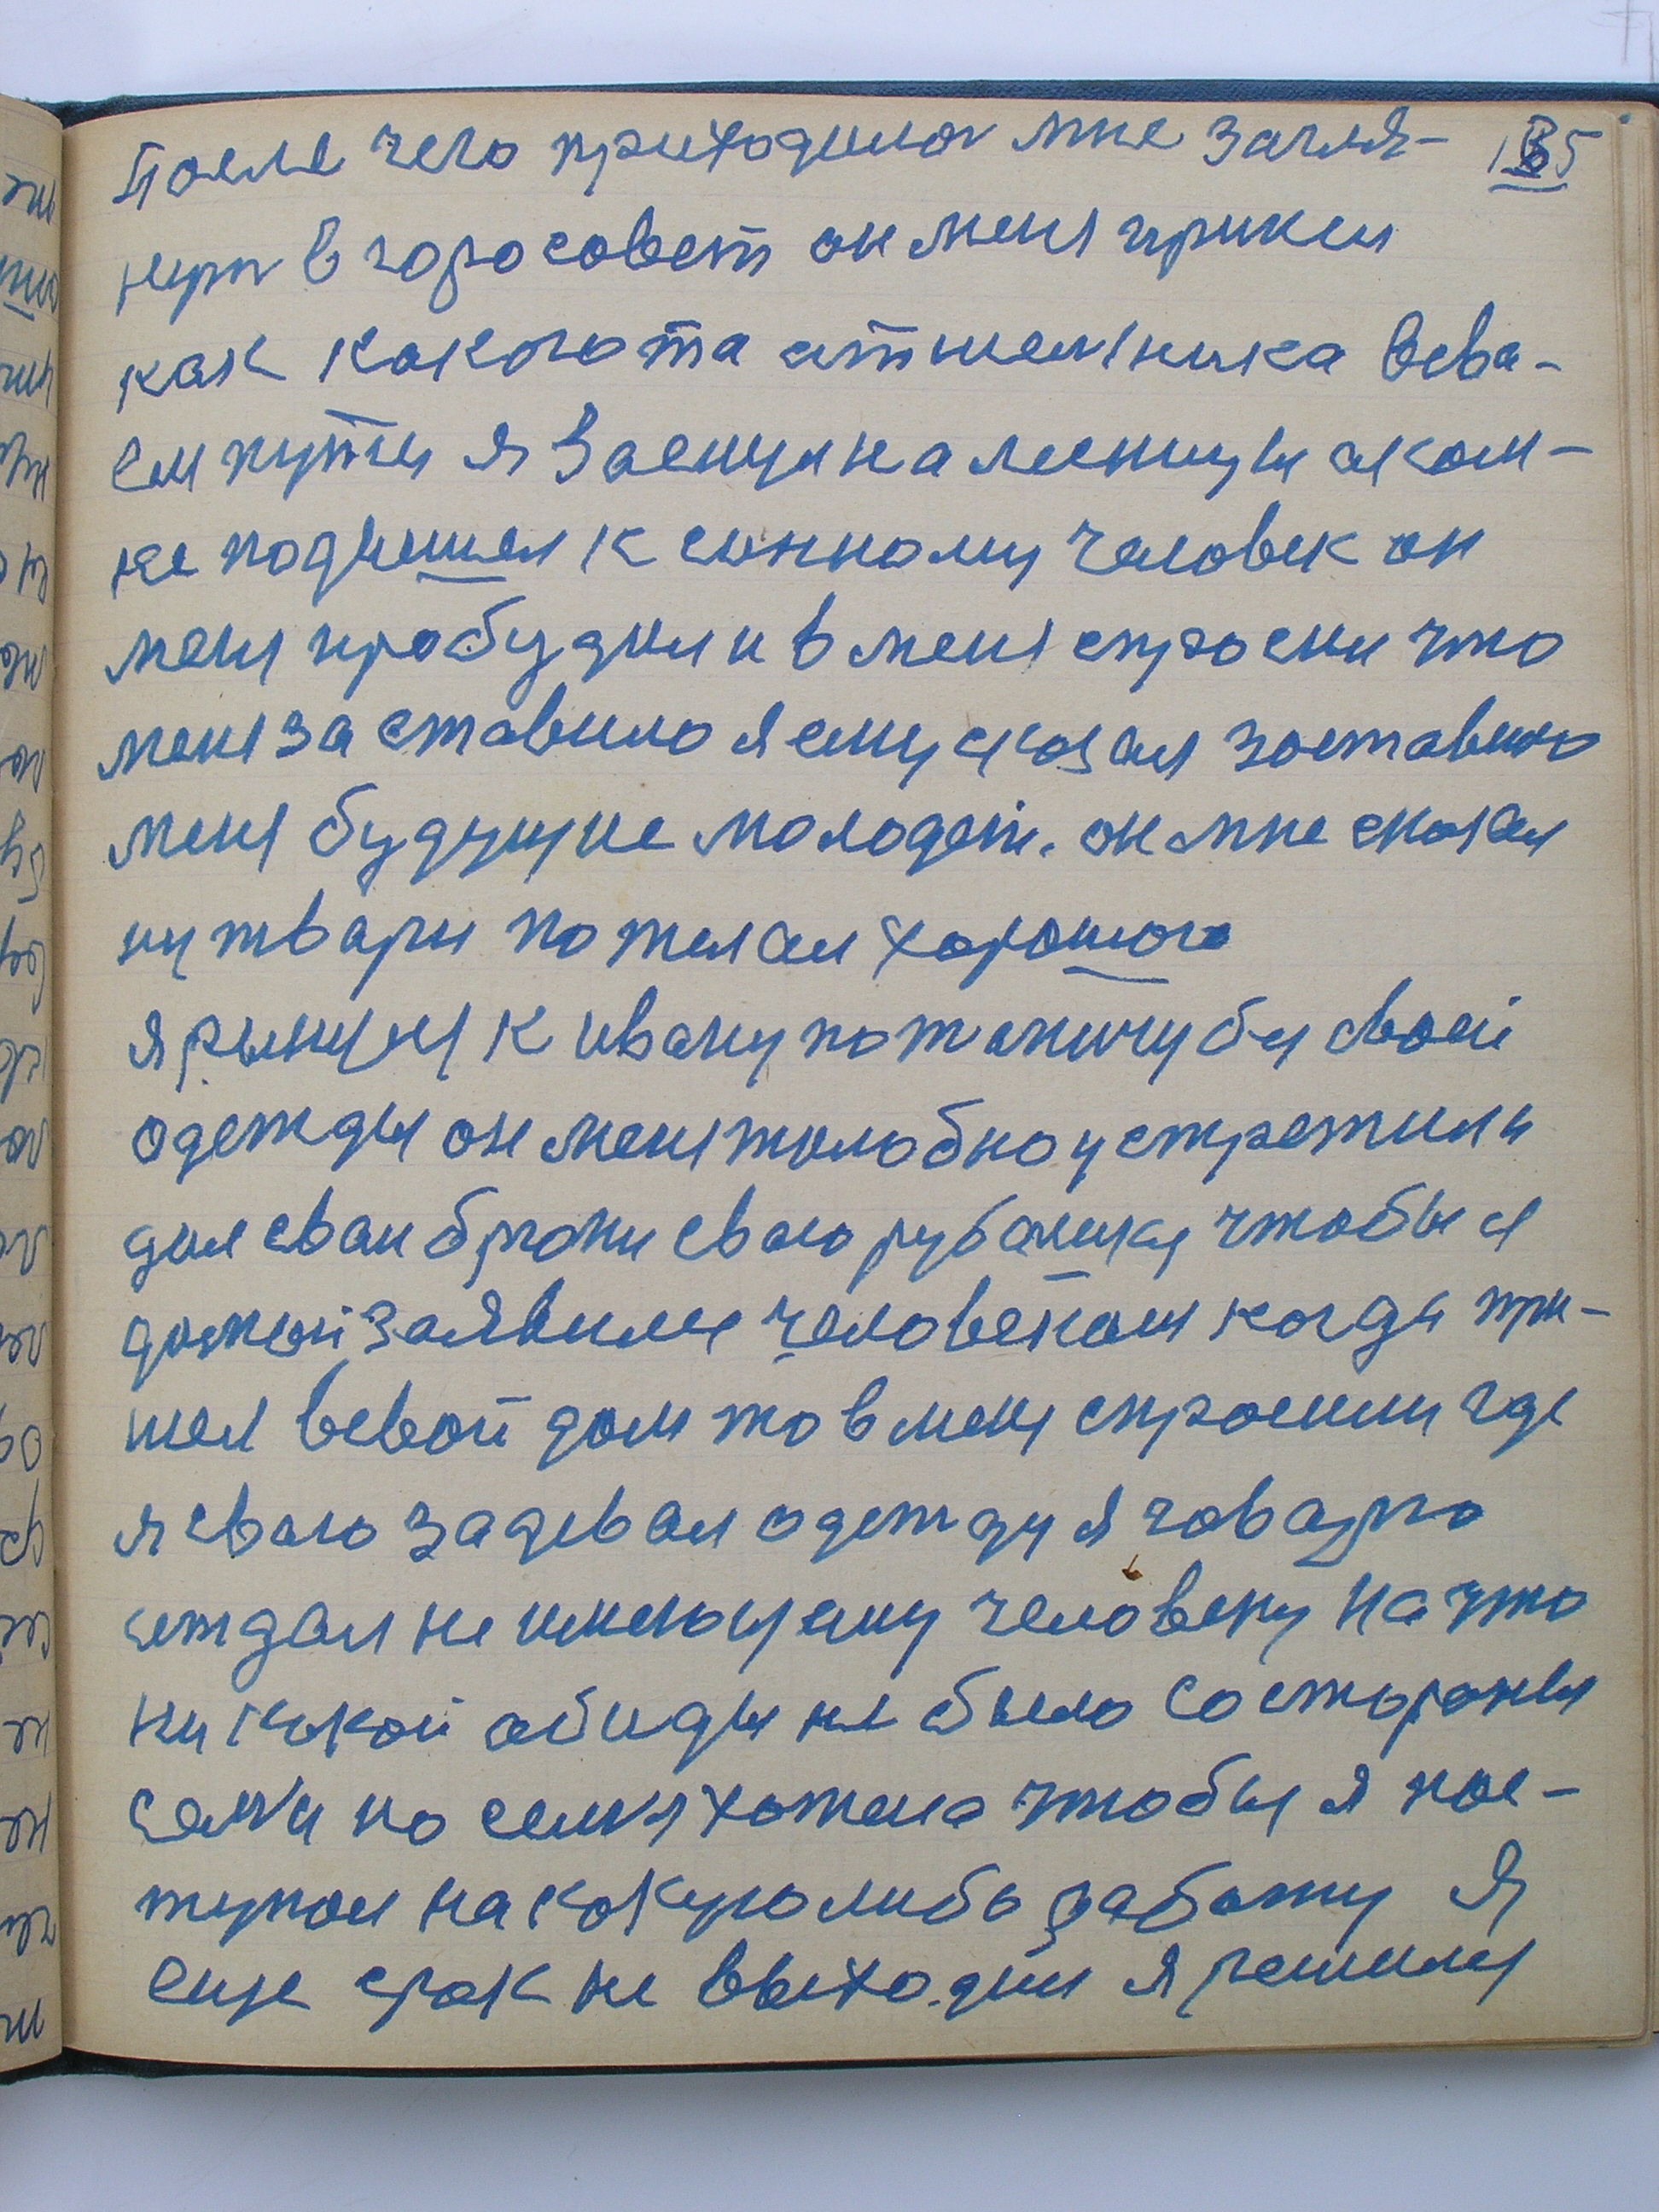 135
После чего приходилол мне загля-
нуть в горосовет он меня принял
как каконота атшельника всва-
ем пути я заснул на лесницы аком-
не подшел к сонному человек он
меня пробудил и в меня спросил что
меня заставило я ему сказал заставило
меня будущие молодеж. он мне сказал
ну твари пожелал хорошого
я рынулся к ивану потапичу без своей
одежды он меня жалобно устретил и
дал сваи брюки сваю рубашку чтобы я
домой заявился человеком когда при-
шел всвой дом то в меня спросили где
я сваю задевал одежду я говарю
атдал не имеющему человеку на что
ни какой абиды не было со стораны
семи но семя хотела чтобы я пос-
тупал на какую либо работу я
еще срак не выходил я решился